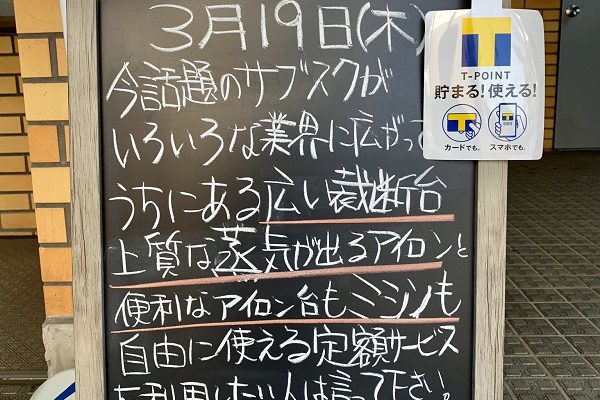 3月19日(木)
今話題のサブスクが
いろいろな業界に広がって
うちにある広い裁断台
上質な蒸気が出るアイロンと
便利なアイロン台もミシンも
自由に使える定額サービス
を利用したい人は言って下さい。
T-POINT
貯まる!使える!
カードでも。 スマホでも。